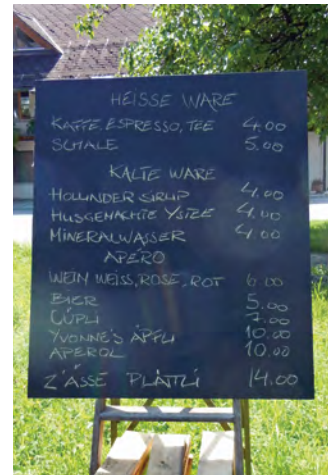 HEISSE WARE
KAFFE, ESPRESSO, TEE 4.00
SCHALE 5.00
KALTE WARE
HOLUNDER SIRUP 4.00
HUSGEMACHTE YSTEE 4.00
MINERALWASSER 4.00
APÉRO
WEIN WEISS, ROSE, ROT 6.00
BIER 5.00
CÜPLI 7.00
YVONNE'S ÄPFLI 10.00
APEROL 10.00
Z'ÄSSE PLÄTTLI 14.00